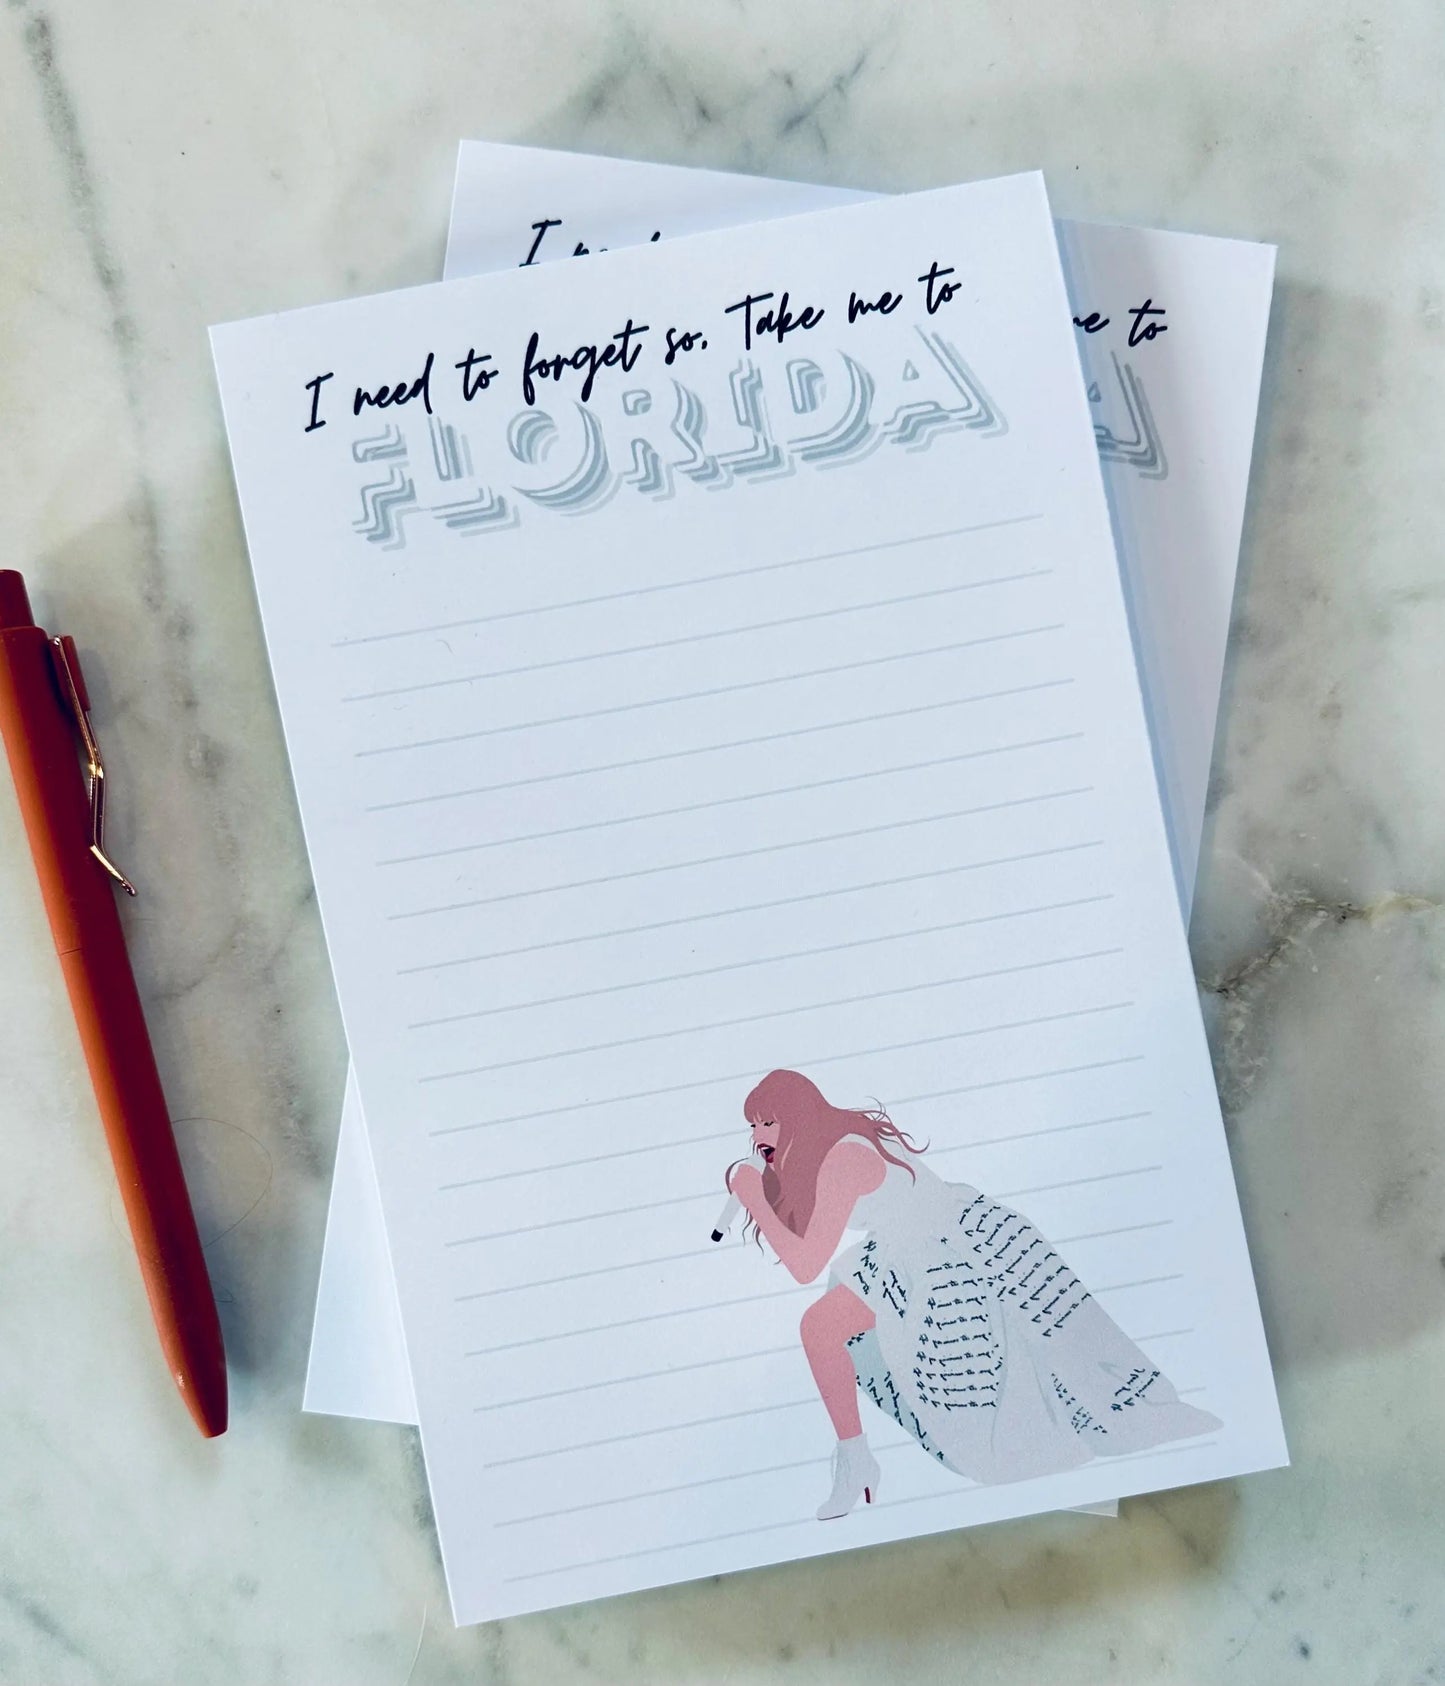 I need to forget so. Take me to
FLORIDA
I need
me to
A